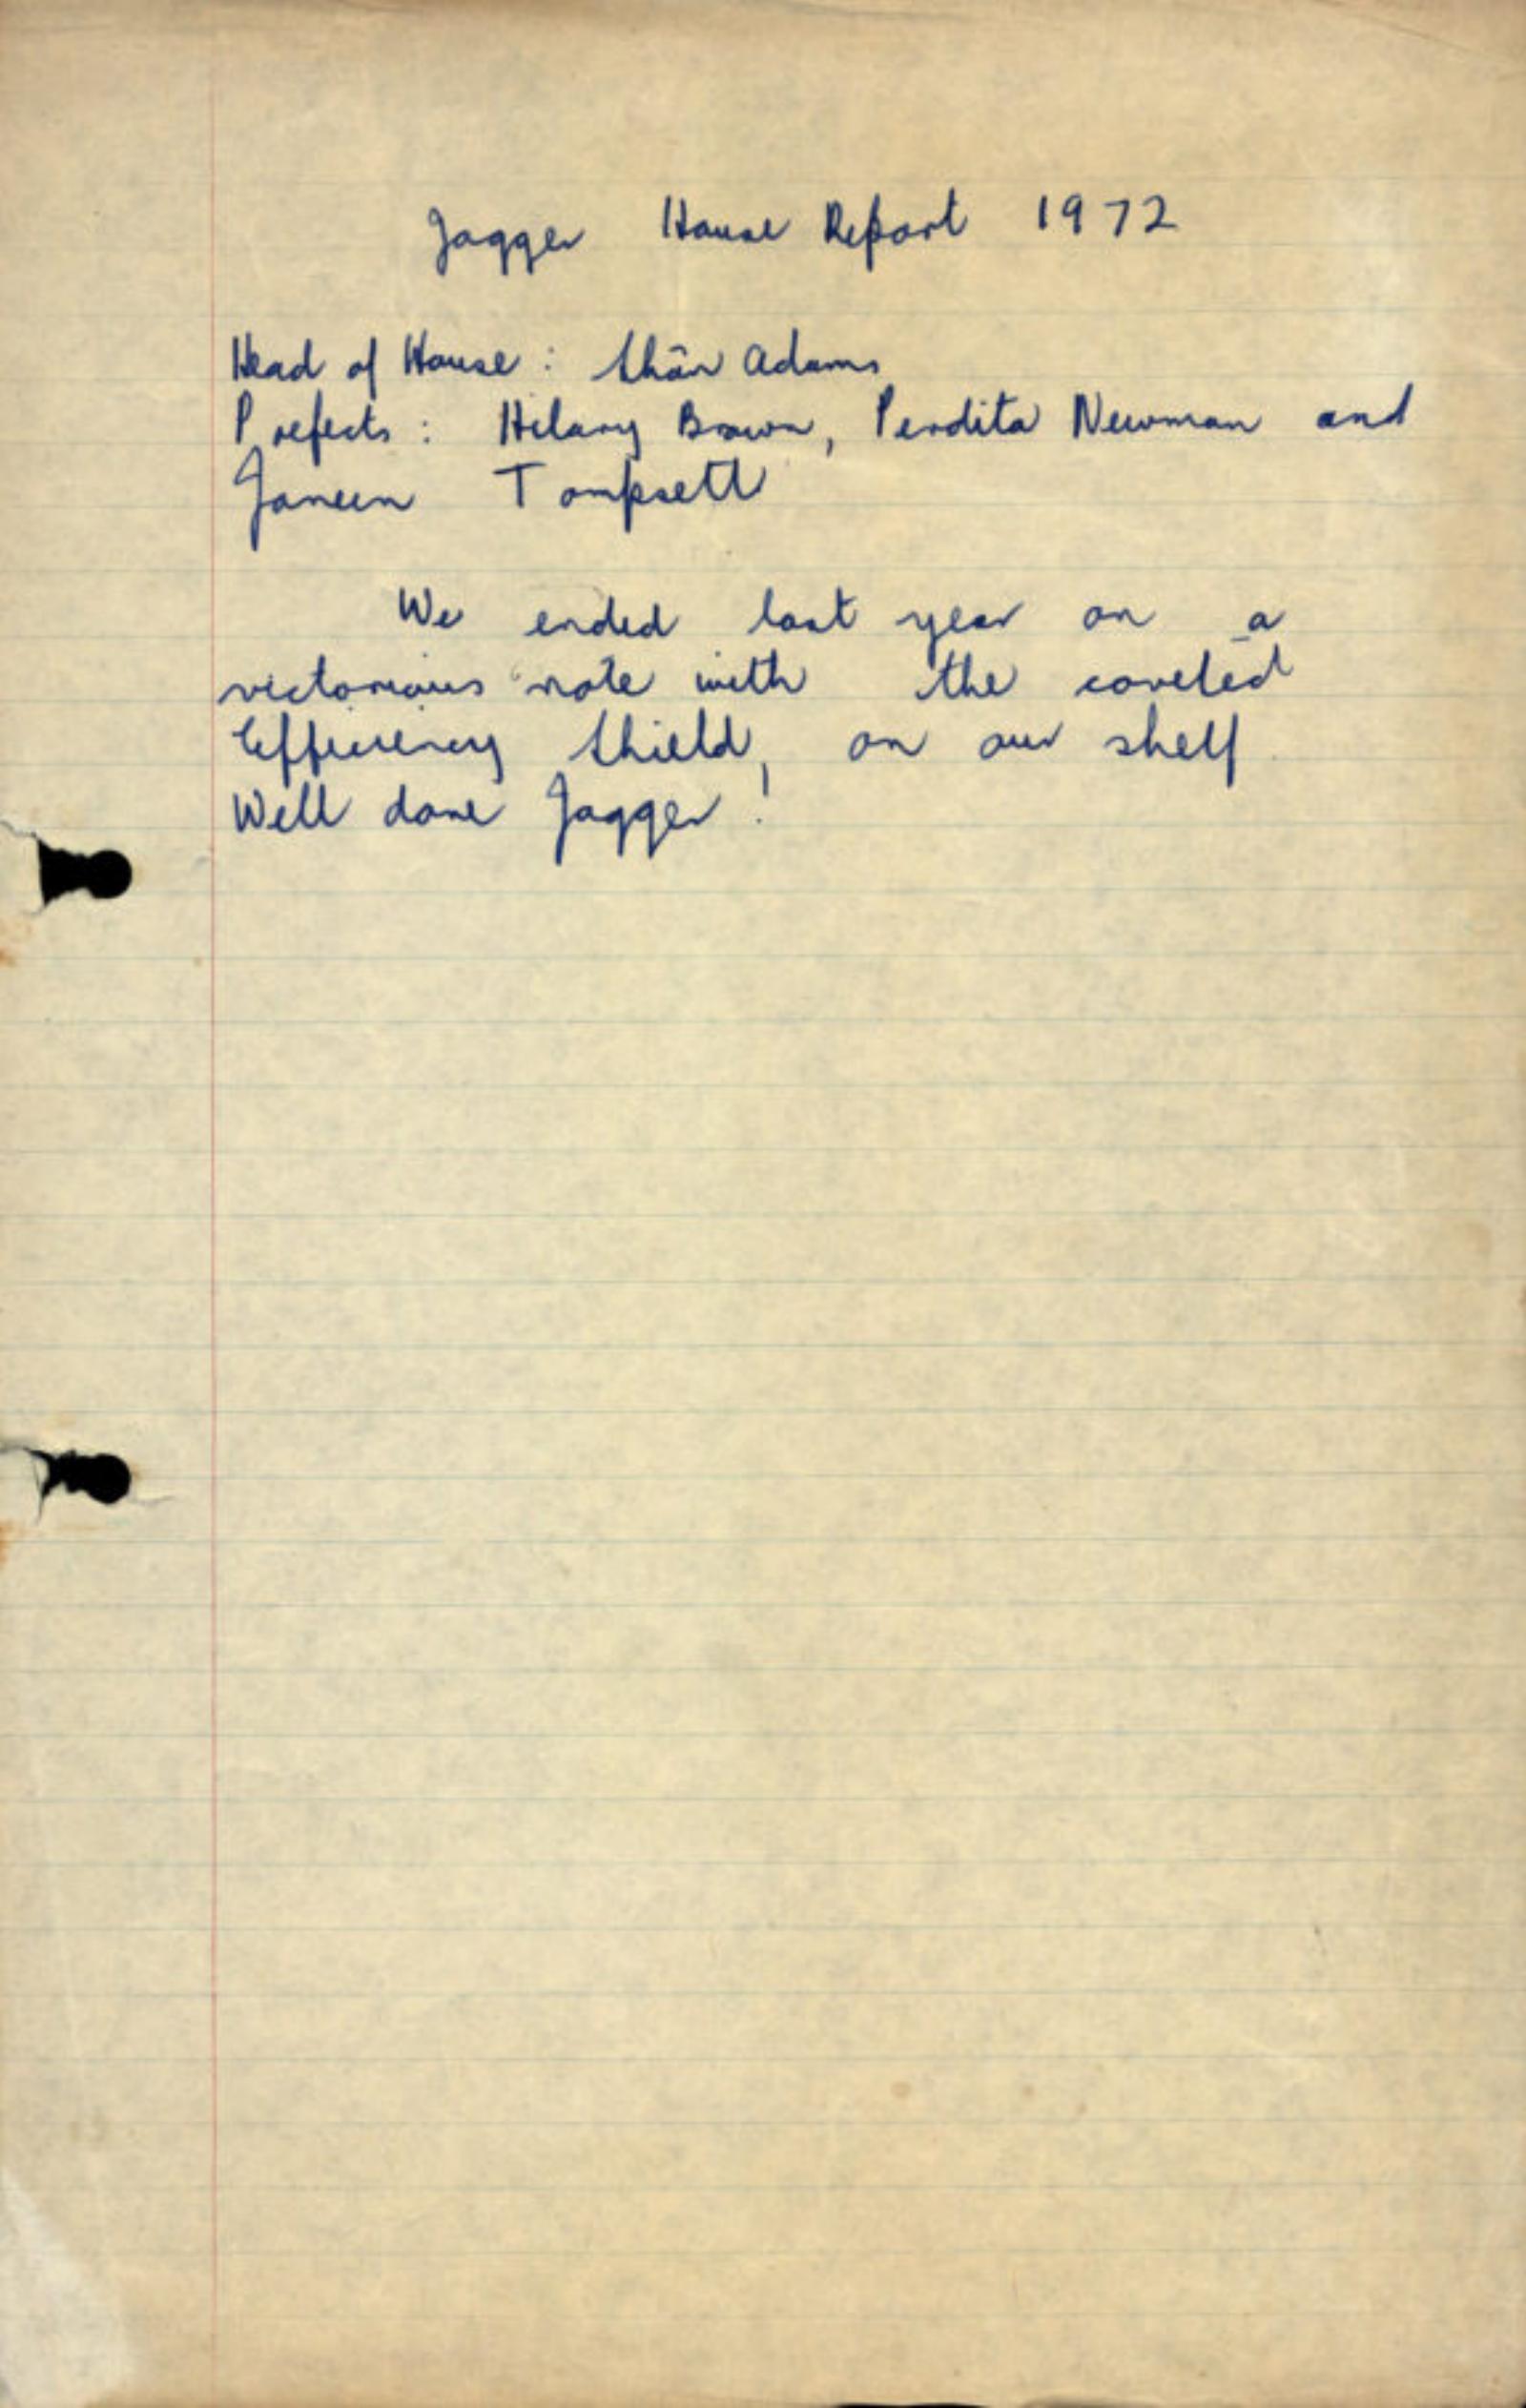 Jagger House Report 1972
Head of House: Shân Adams
Prefects: Hilary Brown, Perdita Newman and
Janeen Tompsett
We ended last year on a
victorious note with the coveted
Efficiency Shield, on our shelf.
Well done Jagger!